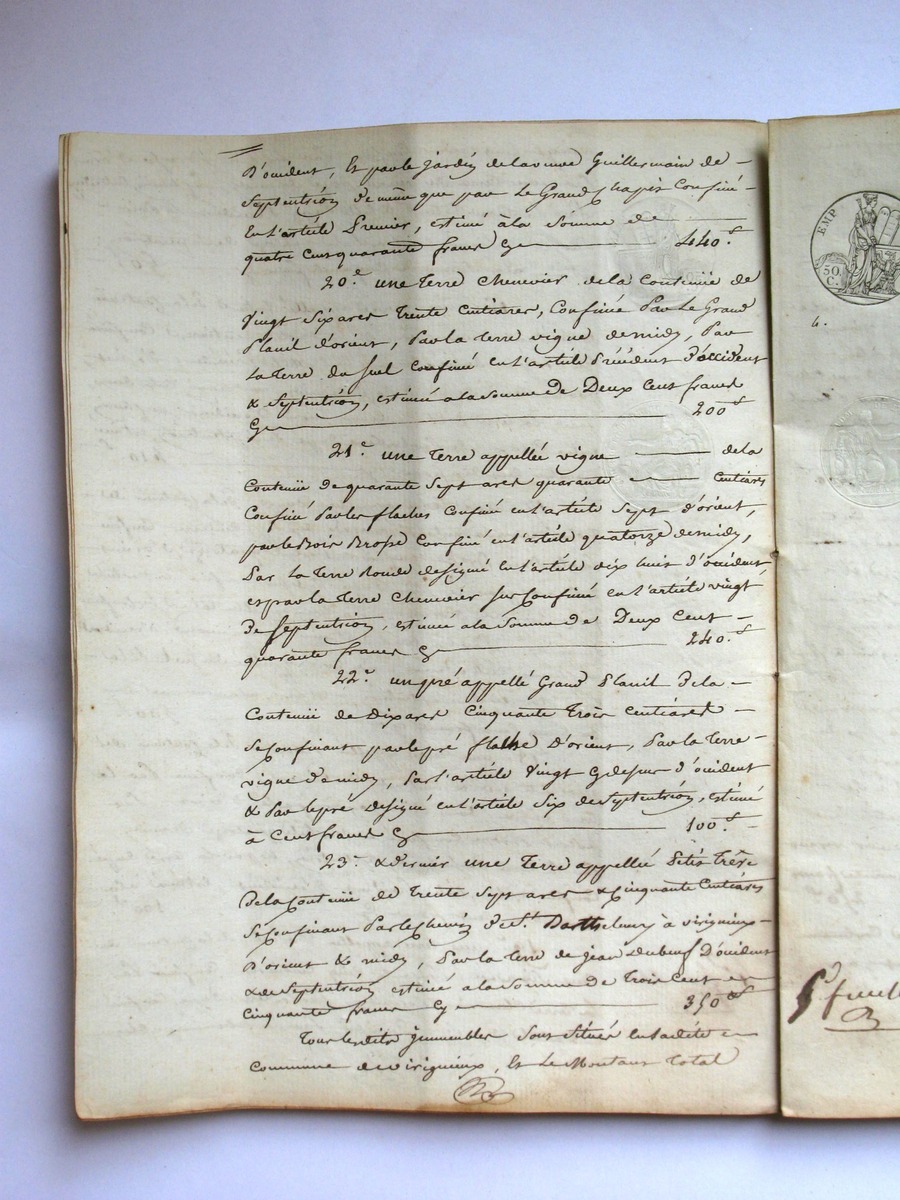 D'occident, Et par le jardin de la veuve Guillermain de —
Septentrion de même que par Le Grand chapit Confiné —
En l'article Premier, estimé à la Somme de ——
quatre Cent quarante francs Cy —— 440.f
20.e une Terre Chenevier de la Contenüe de
Vingt Six ares Trente Centiares, Confinée Par Le Grand
Planil d'orient, Par la Terre vigne de midy, Par
La Terre du Suel Confiné en l'article Précédent d'occident
& Septentrion, estimée a la Somme De Deux Cent francs
Cy —— 200f
21.e une Terre appellée vigne —— de la
Contenüe De quarante Sept ares quarante —— Centiares
Confiné Par les flaches Confiné en l'article Sept d'orient,
par le Bois Brosse Confiné en l'article quatorze de midy,
Par La Terre Ronde designé en l'article dix huit d'occident
et par la Terre Chenevier Sus Confiné en l'article vingt
De Septentrion, estimée a la Somme de Deux Cent —
quarante francs Cy —— 240.f
22.e un pré appellé Grand Planil De la —
Contenüe de Dix ares Cinquante Trois Centiares —
Se Confinant par le pré flache D'orient, Par la Terre —
vigne De midy, Par l'article Vingt Cy dessus d'occident
& Par le pré designé en l'article Six de Septentrion, estimé
à Cent francs Cy —— 100.f —
23.e & dernier une Terre appellée
De la Contenüe de Trente Sept ares & Cinquante Centiares
Se Confinant Par le Chemin De St. Barthelemy à virignieux —
D'orient & midy, Par la Terre de jean Duboeuf D'occident
& de Septentrion estimée a la Somme de Trois Cent
Cinquante francs Cy —— 350 f
Tous les dits jmmeubles Sont Situés en la dite
Commune de virignieux, Et Le Montant Total
EMP
50
C.
4.